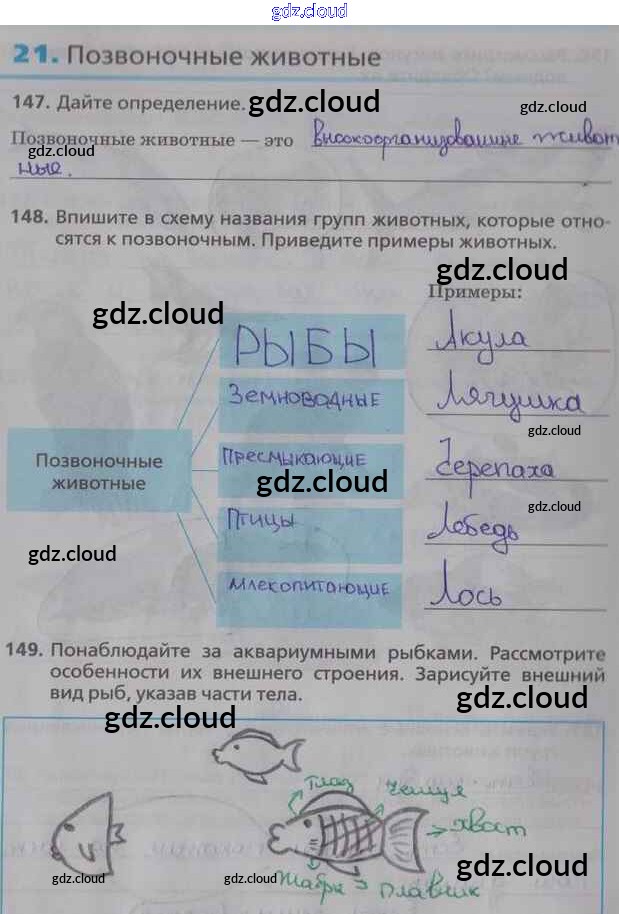 gdz.cloud
21. Позвоночные животные
147. Дайте определение. gdz.cloud
gdz.cloud
Позвоночные животные — это высокоорганизованные живот
gdz.cloud
ные.
148. Впишите в схему названия групп животных, которые отно-
сятся к позвоночным. Приведите примеры животных.
gdz.cloud
Примеры:
gdz.cloud
РЫБЫ Акула
Земноводные Лягушка
gdz.cloud
Позвоночные
животные
Пресмыкающие Черепаха
gdz.cloud
gdz.cloud
Птицы Лебедь
gdz.cloud
Млекопитающие Лось
149. Понаблюдайте за аквариумными рыбками. Рассмотрите
особенности их внешнего строения. Зарисуйте внешний
вид рыб, указав части тела.
gdz.cloud
gdz.cloud
глаз чешуя
хвост
gdz.cloud
gdz.cloud
gdz.cloud
Жабры плавник